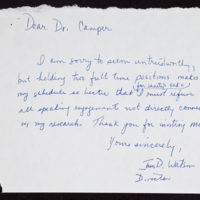 Dear Dr. Camper
I am sorry to seem untrustworthy,
but holding two full time positions makes
my schedule so hectic that I must refuse
all speaking engagements not directly connec
my research. Thank you for inviting me
Yours sincerely,
Director